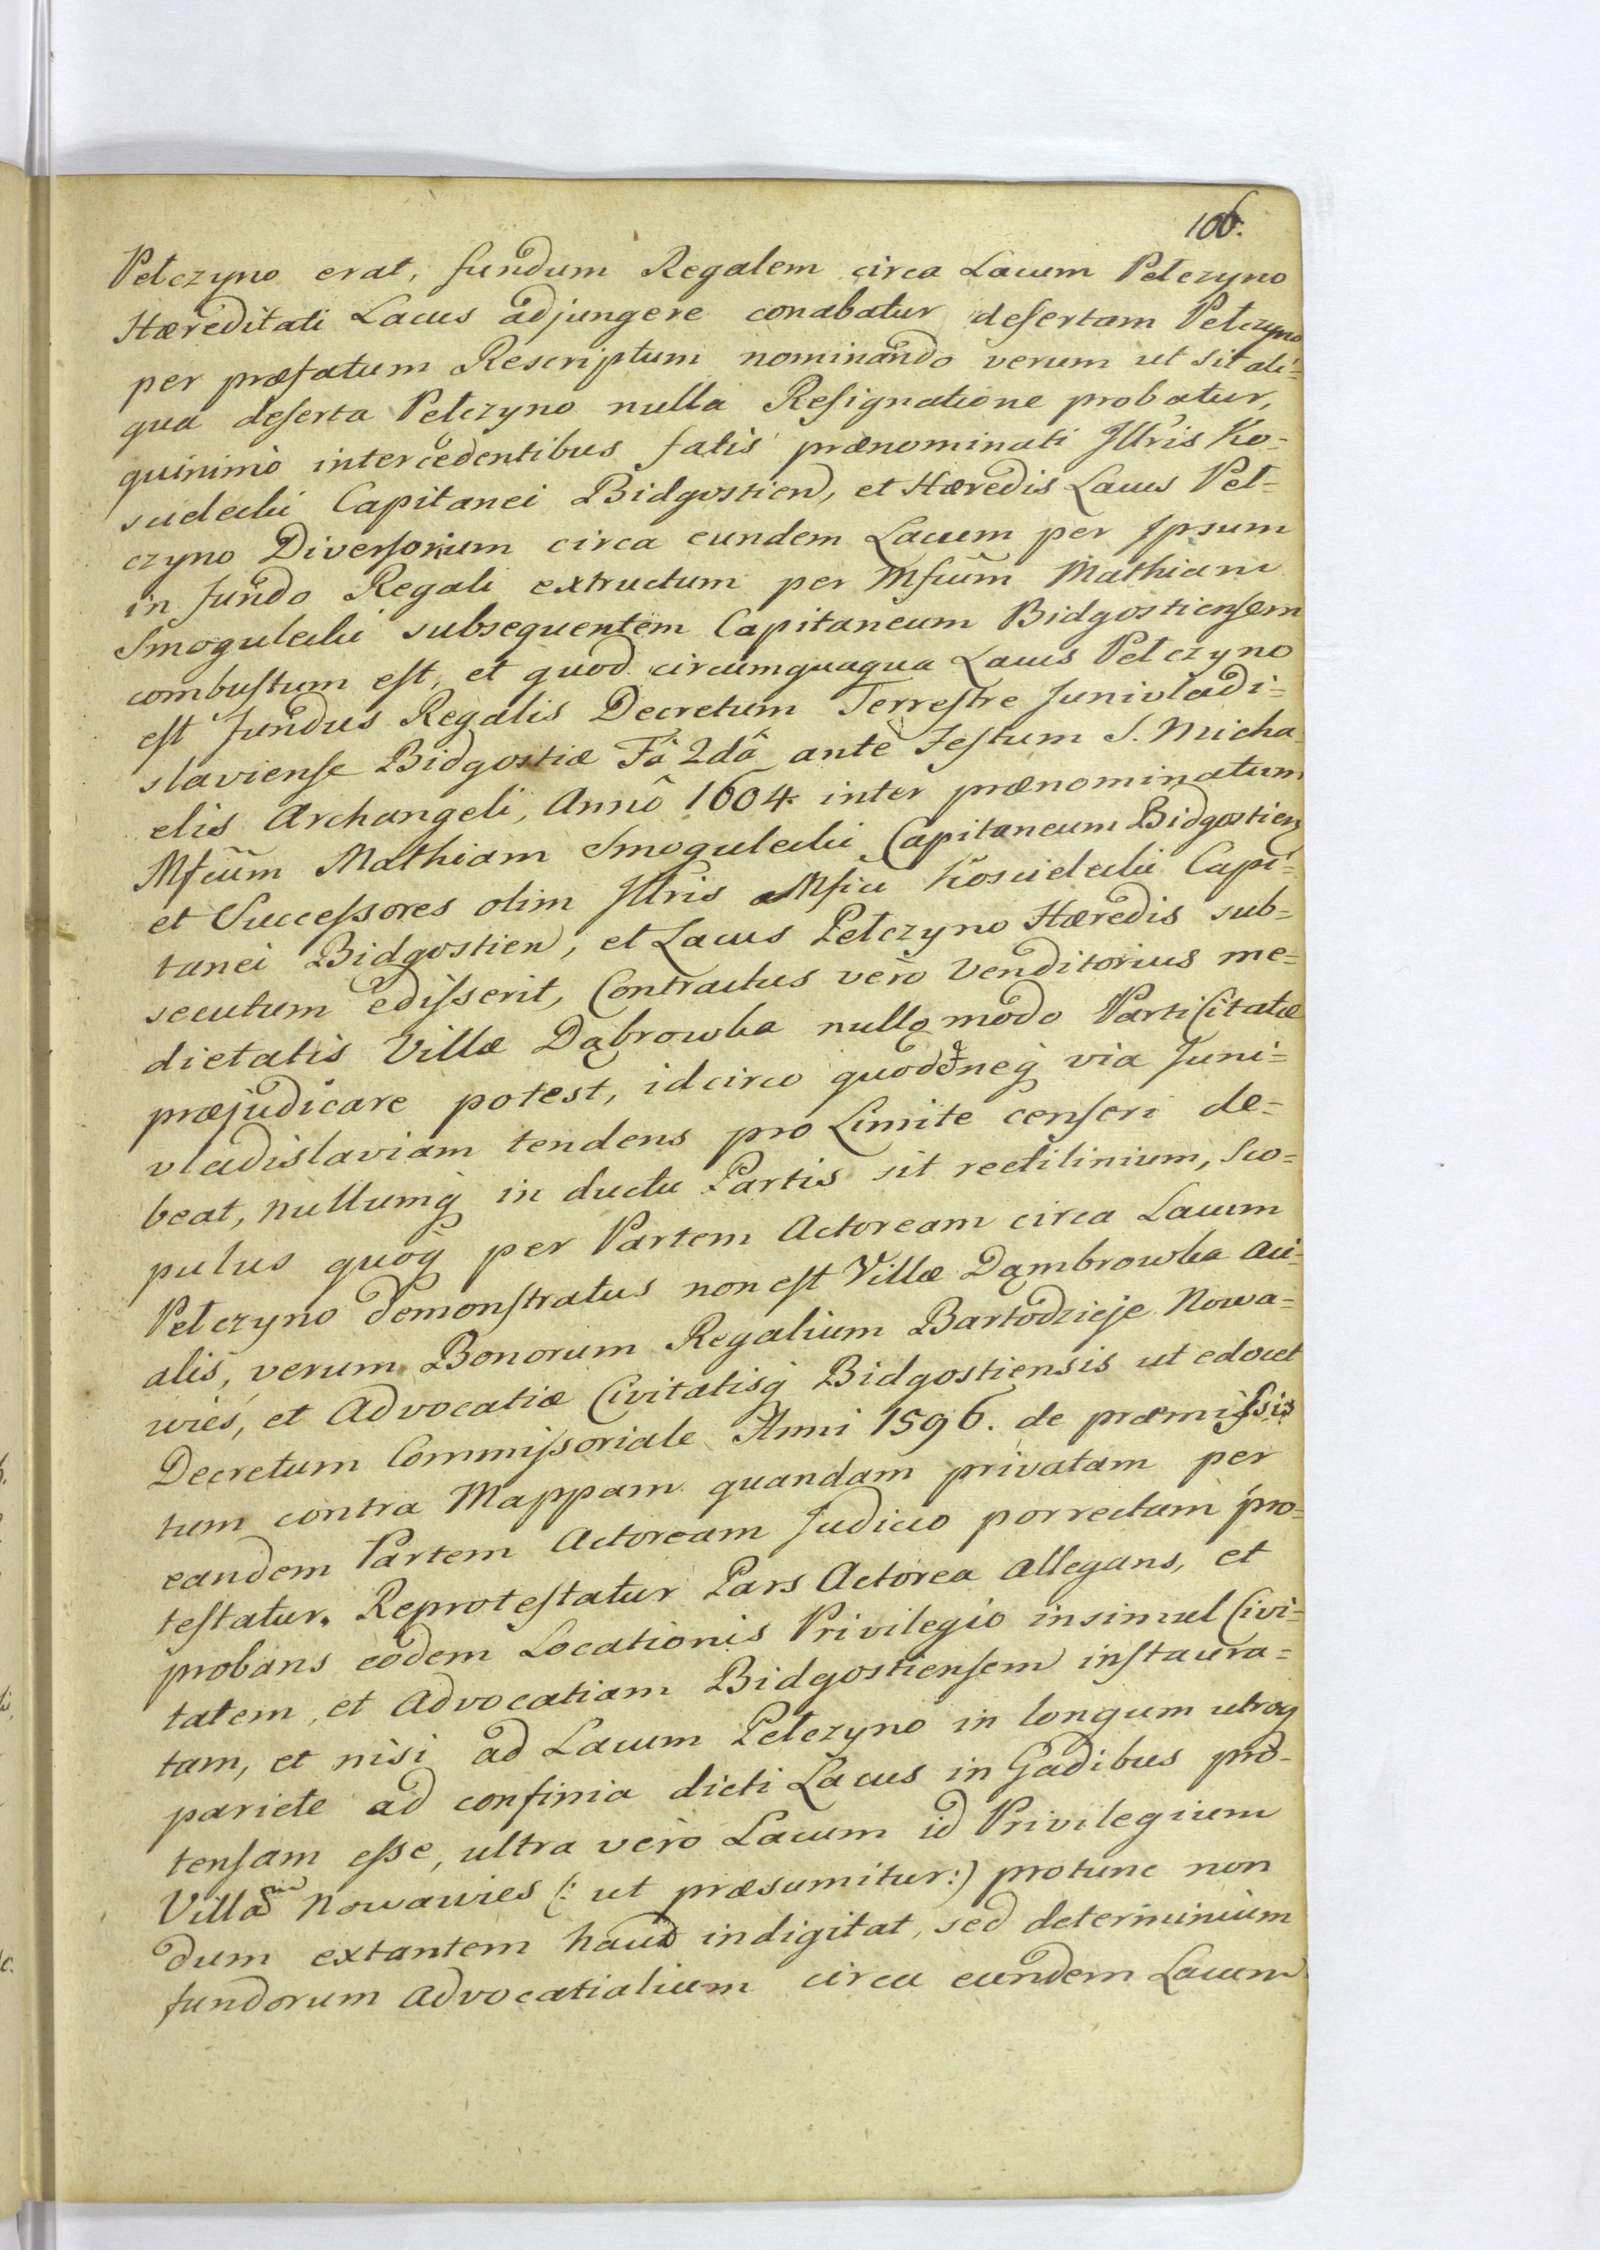 106.
Pełczyno erat, fundum Regalem circa Lacum Pełczyno
Hæreditati Lacus adjungere conabatur desertam Pełczyno
per præfatum Rescriptum nominando verum ut sit ali=
qua deserta Pełczyno nulla Resignatione probatur,
quinimò intercedentibus fatis prænominati Jllris Ko=
scielecki Capitanei Bidgostien, et Hæredis Lacus Peł=
czyno Diversorium circa eundem Lacum per Ipsum
in fundo Regali extructum per Mfcum Mathiam
Smogulecki subsequentem Capitaneum Bidgostiensem
combustum est, et quod circumquaqua Lacus Pełczyno
est fundus Regalis Decretum Terrestre Junivladi=
slaviense Bidgostiæ Fâ 2dâ ante Festum S. Micha=
elis Archangeli, Annô 1604. inter prænominatum
Mfcum Mathiam Smogulecki Capitaneum Bidgostien
et Successores olim Jllris Mfici Koscielecki Capi=
tanei Bidgostien, et Lacus Pełczyno Hæredis sub=
secutum edisserit, Contractus verò Venditorius me=
dietatis Villæ Dąbrowka nullo modo Particitatæ
præjudicare potest, idcirco quod neq via Juni=
vladislaviam tendens pro Limite censeri de=
beat, nullumq in ductu Partis sit rectilinium, Sco=
pulus quoq per Partem Actoream circa Lacum
Pełczyno demonstratus non est Villæ Dąmbrowka aci=
alis, verum Bonorum Regalium Bartodzieje Nowa=
wieś, et Advocatiæ Civitatisq Bidgostiensis ut edocet
Decretum Commissoriale Anni 1596. de præmissis
tum contra Mappam quandam privatam per
eandem Partem Actoream Judicio porrectam pro=
testatur. Reprotestatur Pars Actorea allegans, et
probans eodem Locationis Privilegio insimul Civi=
tatem, et Advocatiam Bidgostiensem instaura=
tam, et nisi ad Lacum Pełczyno in longum utroq
pariete ad confinia dicti Lacus in Gadibus pro=
tensam esse, ultra verò Lacum id Privilegium
Villam Nowawies (: ut præsumitur :) protunc non
dum extantem haud indigitat, sed determinium
fundorum Advocatialium circa eundem Lacum